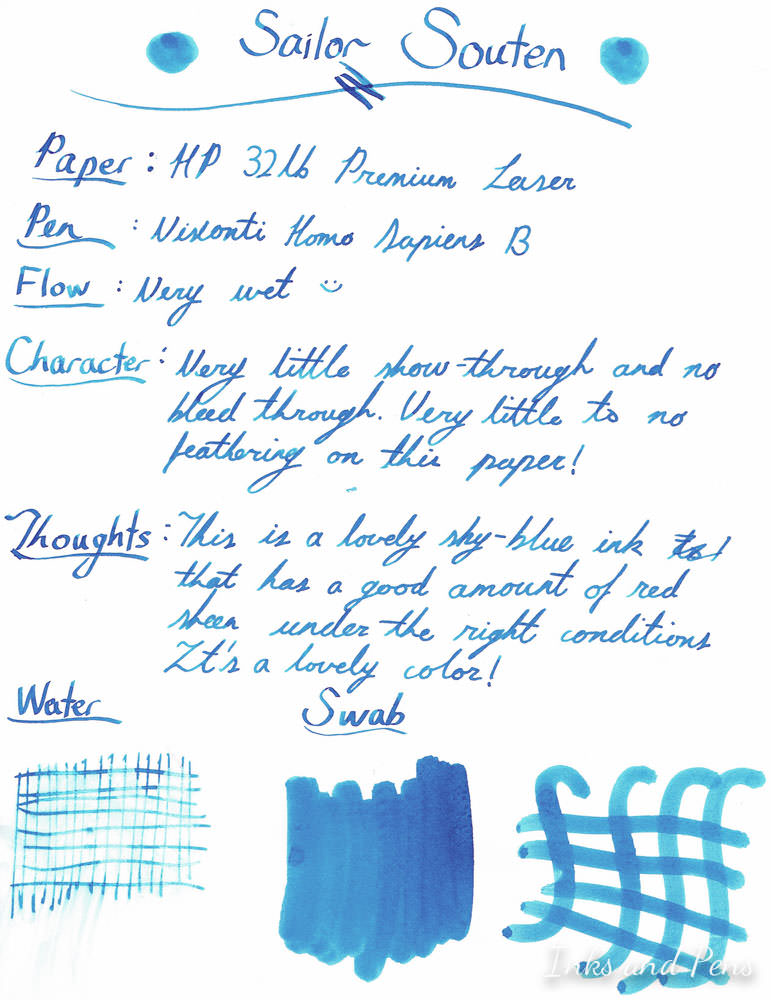 Sailor Souten
Paper : HP 32lb Premium Laser
Pen : Visconti Homo Sapiens B
Flow : Very wet :)
Character : Very little show-through and no
bleed through. Very little to no
feathering on this paper!
Thoughts : This is a lovely sky-blue ink
that has a good amount of red
sheen under the right conditions
It's a lovely color!
Water
Swab
Inks and Pens